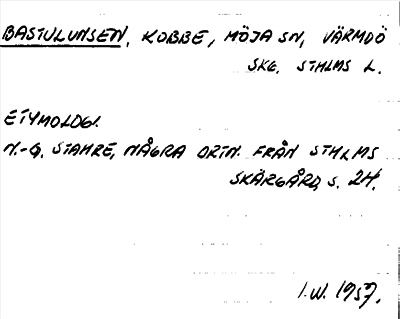 BASTULUNSEN, KOBBE, MÖJA SN, VÄRMDÖ
SKG. STHLMS L.
ETYMOLOGI.
N.-G. STAHRE, NÅGRA ORTN. FRÅN STHLMS
SKÄRGÅRD, S. 24.
I.W. 1957.